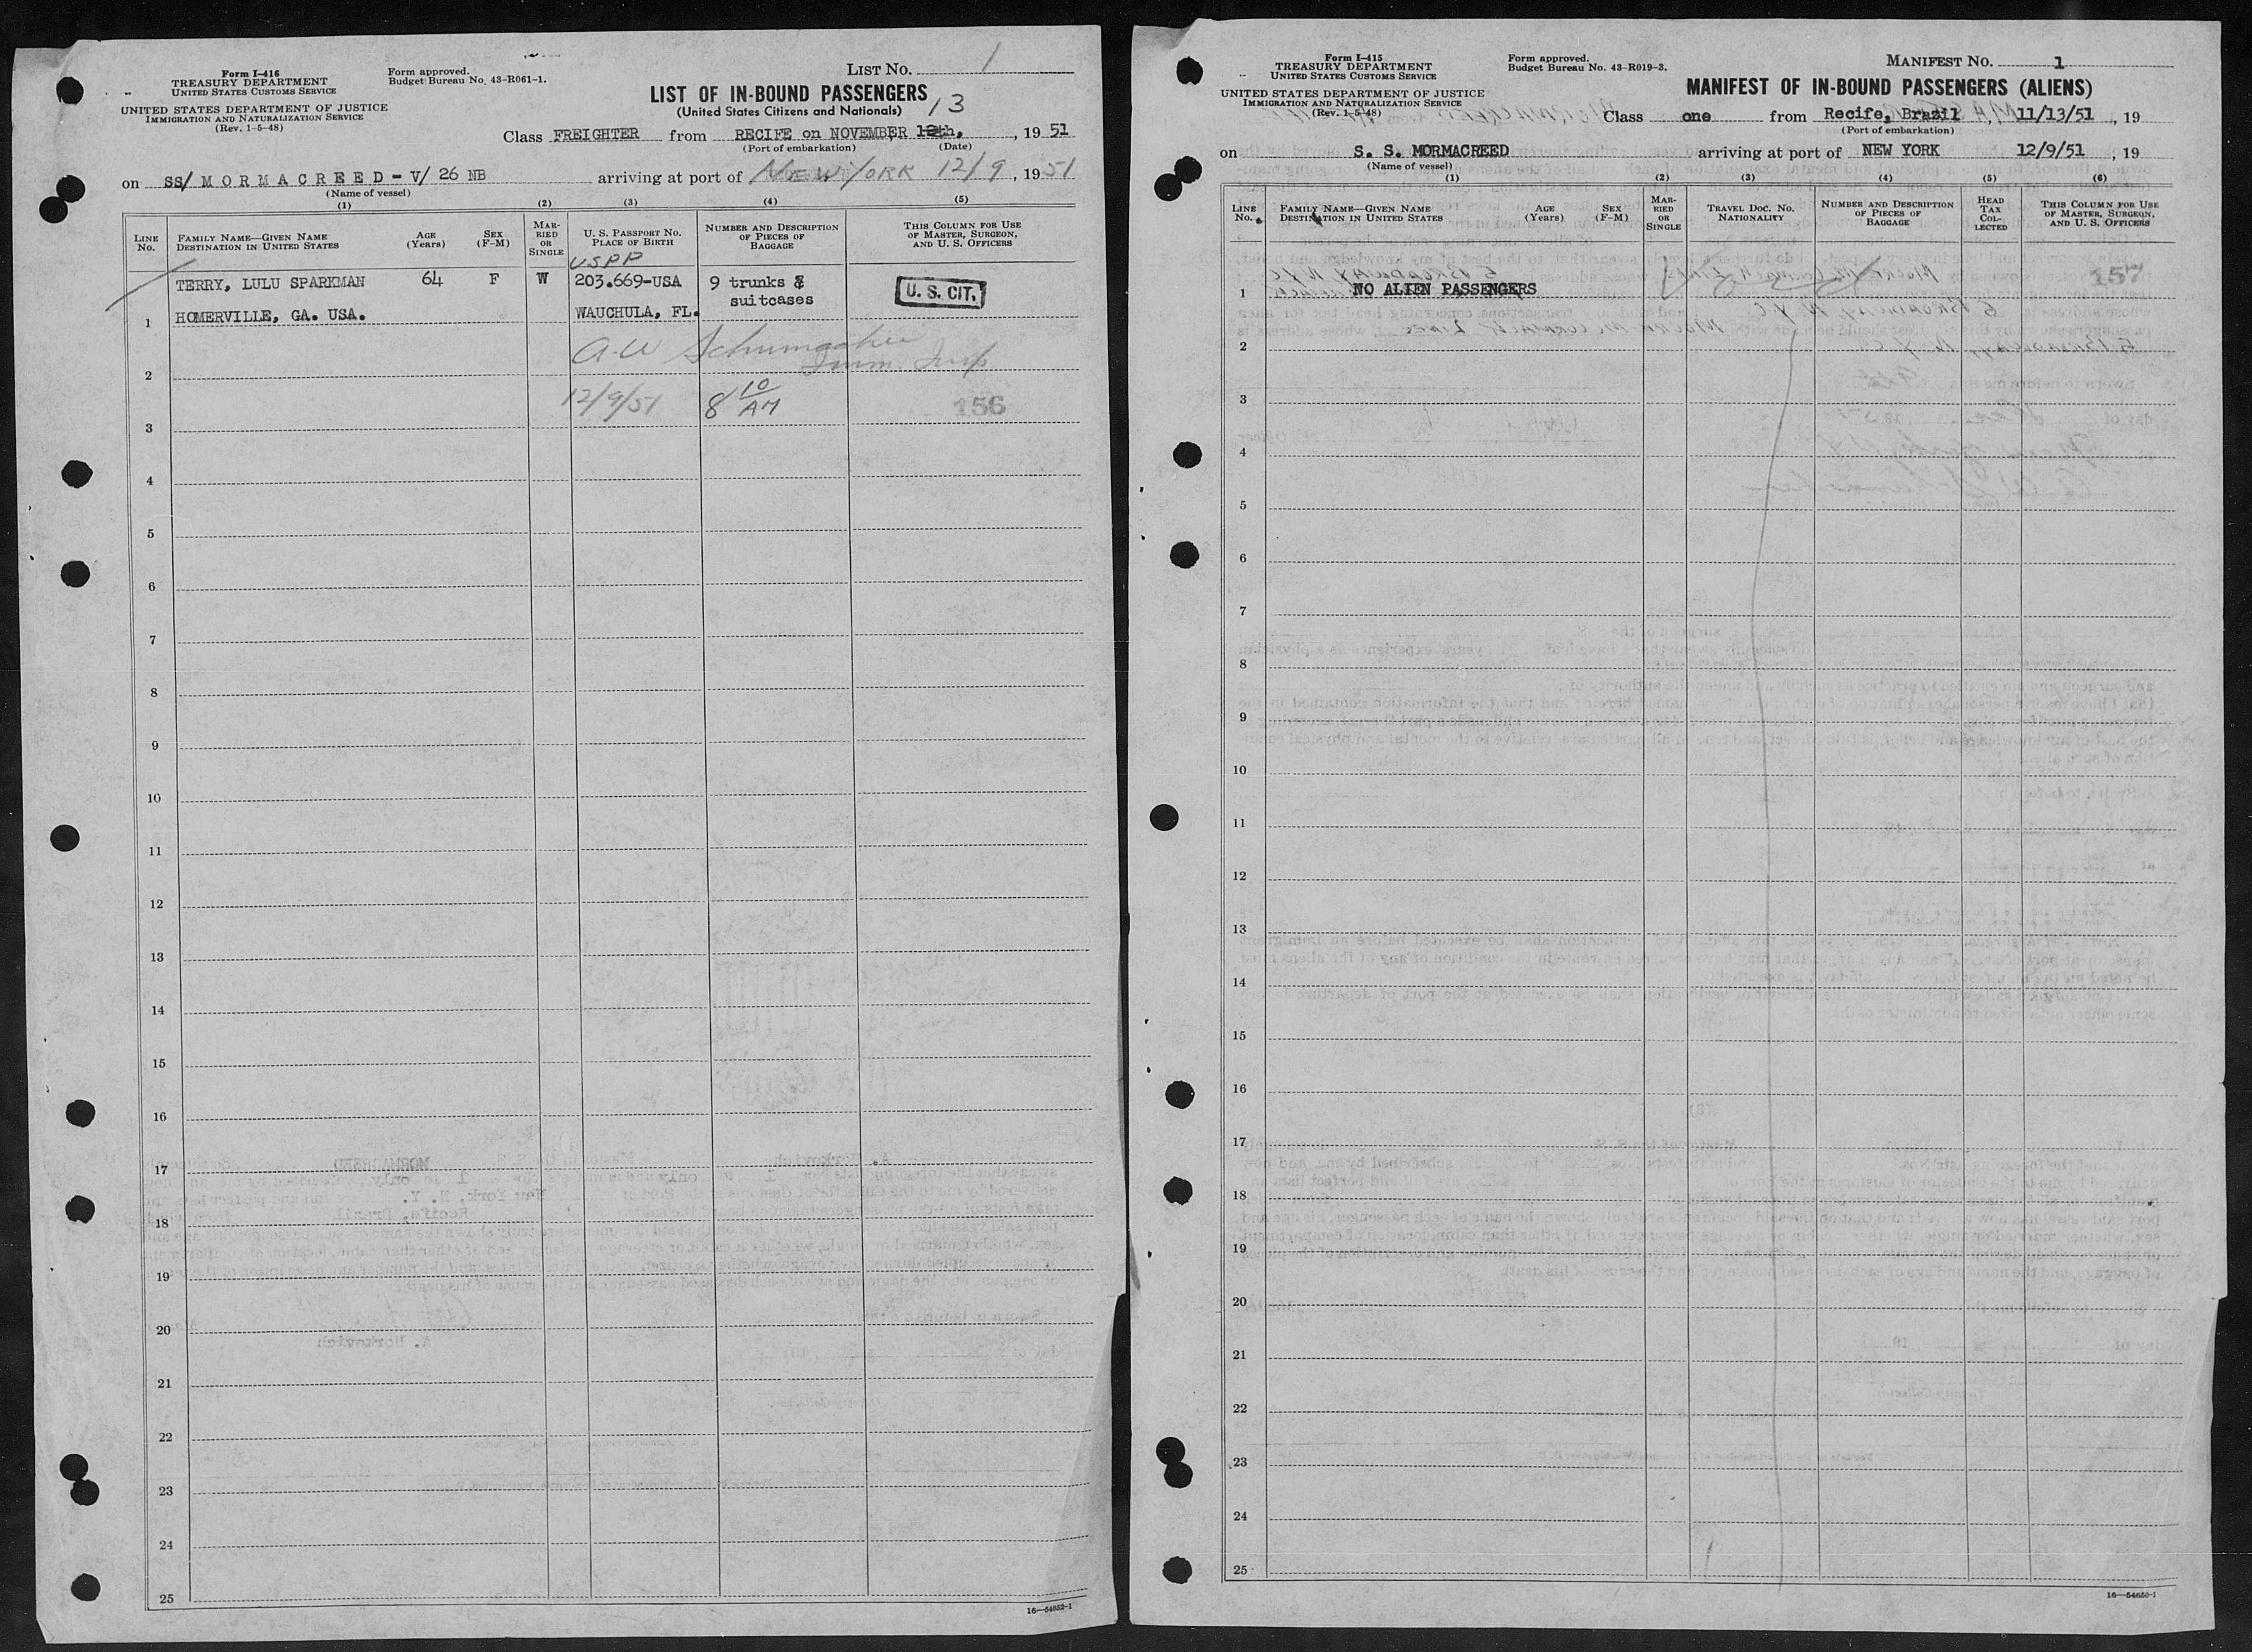 Form I-416
TREASURY DEPARTMENT
UNITED STATES CUSTOMS SERVICE
UNITED STATES DEPARTMENT OF JUSTICE
IMMIGRATION AND NATURALIZATION SERVICE
(Rev. 1-5-48)
Form approved.
Budget Bureau No. 43-R061-1.
LIST NO. 1
LIST OF IN-BOUND PASSENGERS
(United States Citizens and Nationals) 13
Class FREIGHTER from RECIFE on NOVEMBER 12th, , 19 51
(Port of embarkation) (Date)
on SS/ M O R M A C R E E D - V/ 26 NB arriving at port of NEW YORK 12/9, 1951
(Name of vessel)
(1) (2) (3) (4) (5)
LINE No. FAMILY NAME—GIVEN NAME DESTINATION IN UNITED STATES AGE (Years) SEX (F-M) MARRIED OR SINGLE U. S. PASSPORT NO. PLACE OF BIRTH NUMBER AND DESCRIPTION OF PIECES OF BAGGAGE THIS COLUMN FOR USE OF MASTER, SURGEON, AND U. S. OFFICERS
USPP
TERRY, LULU SPARKMAN 64 F W 203.669-USA 9 trunks & suitcases U. S. CIT.
1 HOMERVILLE, GA. USA. WAUCHULA, FL.
A.W Schumacher
2 Imm. Insp
12/9/51 8 10 AM 156
3
4
5
6
7
8
9
10
11
12
13
14
15
16
17
18
19
20
21
22
23
24
25
16—54652-1
Form I-415
TREASURY DEPARTMENT
UNITED STATES CUSTOMS SERVICE
UNITED STATES DEPARTMENT OF JUSTICE
IMMIGRATION AND NATURALIZATION SERVICE
(Rev. 1-5-48)
Form approved.
Budget Bureau No. 43-R019-3.
MANIFEST NO. 1
MANIFEST OF IN-BOUND PASSENGERS (ALIENS)
Class one from Recife, Brazil , 11/13/51 , 19
(Port of embarkation)
on S. S. MORMACREED arriving at port of NEW YORK 12/9/51 , 19
(Name of vessel)
(1) (2) (3) (4) (5) (6)
LINE No. FAMILY NAME—GIVEN NAME DESTINATION IN UNITED STATES AGE (Years) SEX (F-M) MARRIED OR SINGLE TRAVEL DOC. NO. NATIONALITY NUMBER AND DESCRIPTION OF PIECES OF BAGGAGE HEAD TAX COLLECTED THIS COLUMN FOR USE OF MASTER, SURGEON, AND U. S. OFFICERS
157
1 NO ALIEN PASSENGERS
2
3
4
5
6
7
8
9
10
11
12
13
14
15
16
17
18
19
20
21
22
23
24
25
16—54650-1